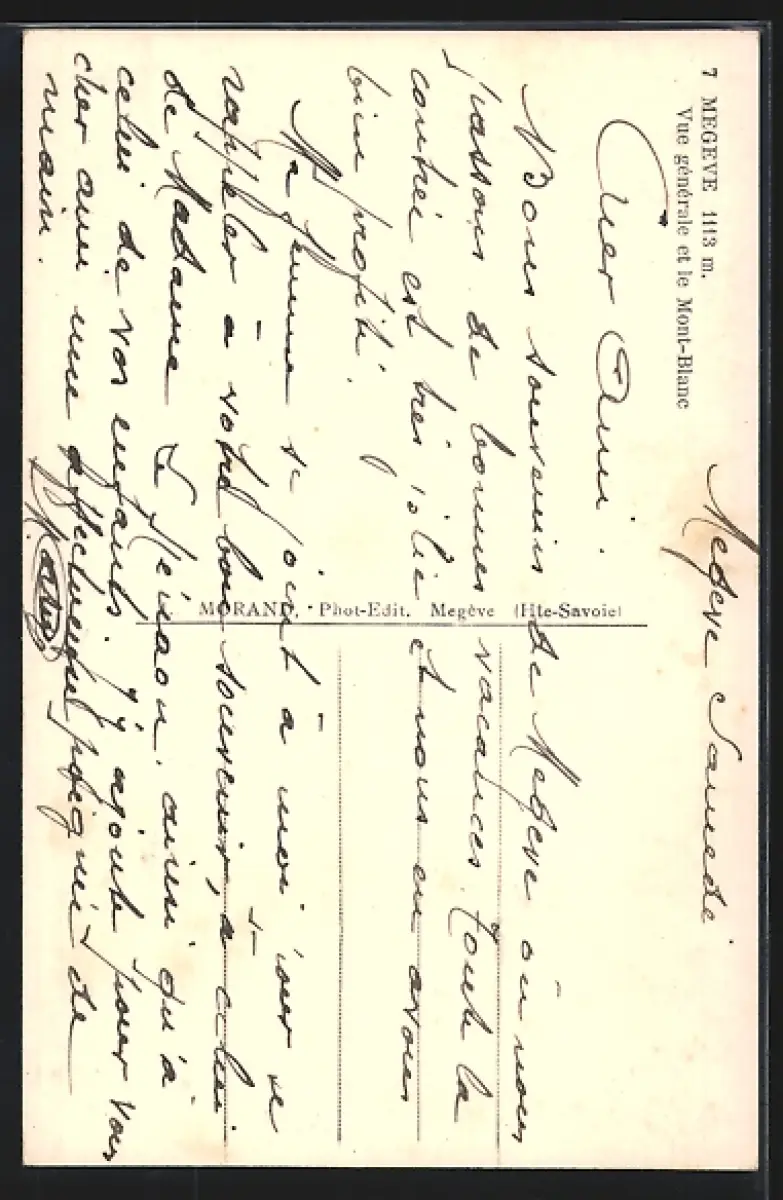 7 MEGÈVE 1113 m.
Vue générale et le Mont-Blanc
MORAND, Phot-Edit. Megève (Hte-Savoie)
Megève Samedi
Cher Ami.
Bons souvenirs de Megève où nous
passons de bonnes vacances. Toute la
contrée est très jolie et nous en avons
bien profité.
Ma femme se joint à moi pour se
rappeler à votre bon souvenir, à celui
de Madame ainsi qu'à
celui de vos enfants. J'y ajoute pour vous
cher ami une affectueuse poignée de
main.